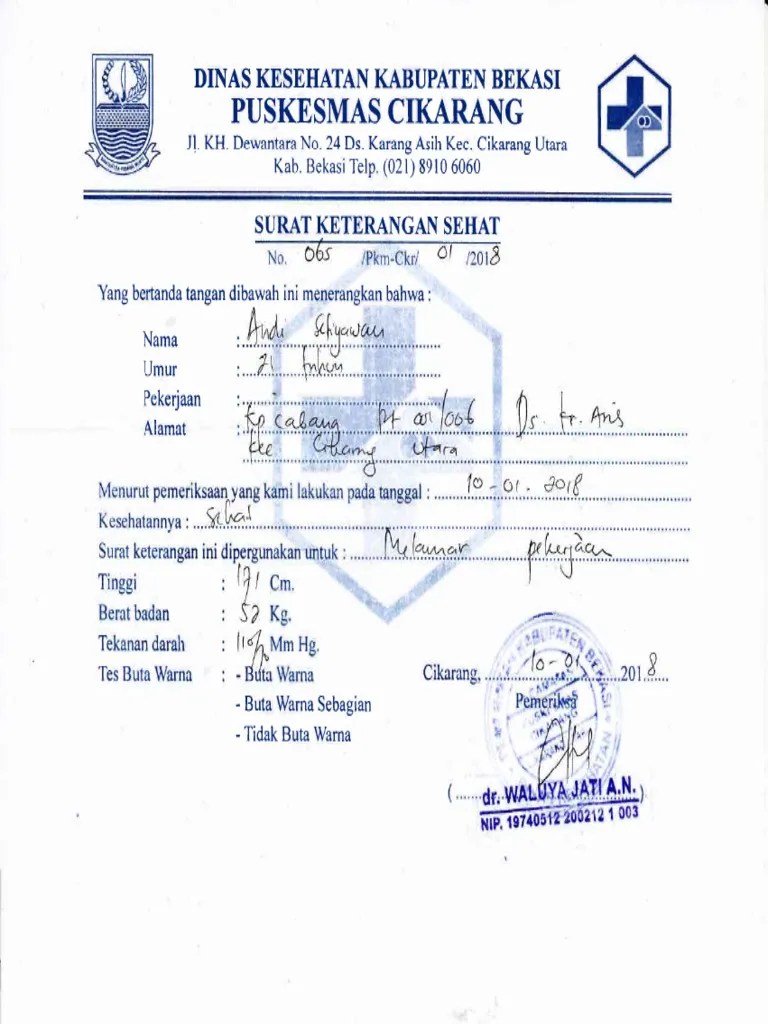 DINAS KESEHATAN KABUPATEN BEKASI
PUSKESMAS CIKARANG
Jl. KH. Dewantara No. 24 Ds. Karang Asih Kec. Cikarang Utara
Kab. Bekasi Telp. (021) 8910 6060
SURAT KETERANGAN SEHAT
No. 065 /Pkm-Ckr/ 01 /2018
Yang bertanda tangan dibawah ini menerangkan bahwa :
Nama : Andi Setiyawan
Umur : 21 tahun
Pekerjaan :
Alamat : Kp Cabang Rt 001/006 Ds. Kr. Asih
Kec Cikarang Utara
Menurut pemeriksaan yang kami lakukan pada tanggal : 10-01-2018
Kesehatannya : Sehat
Surat keterangan ini dipergunakan untuk : Melamar pekerjaan
Tinggi : 171 Cm.
Berat badan : 52 Kg.
Tekanan darah : 110/ Mm Hg.
Tes Buta Warna : - Buta Warna
- Buta Warna Sebagian
- Tidak Buta Warna
Cikarang, 10-01 2018
Pemeriksa
(dr. WALUYA JATI A.N.)
NIP. 19740512 200212 1 003